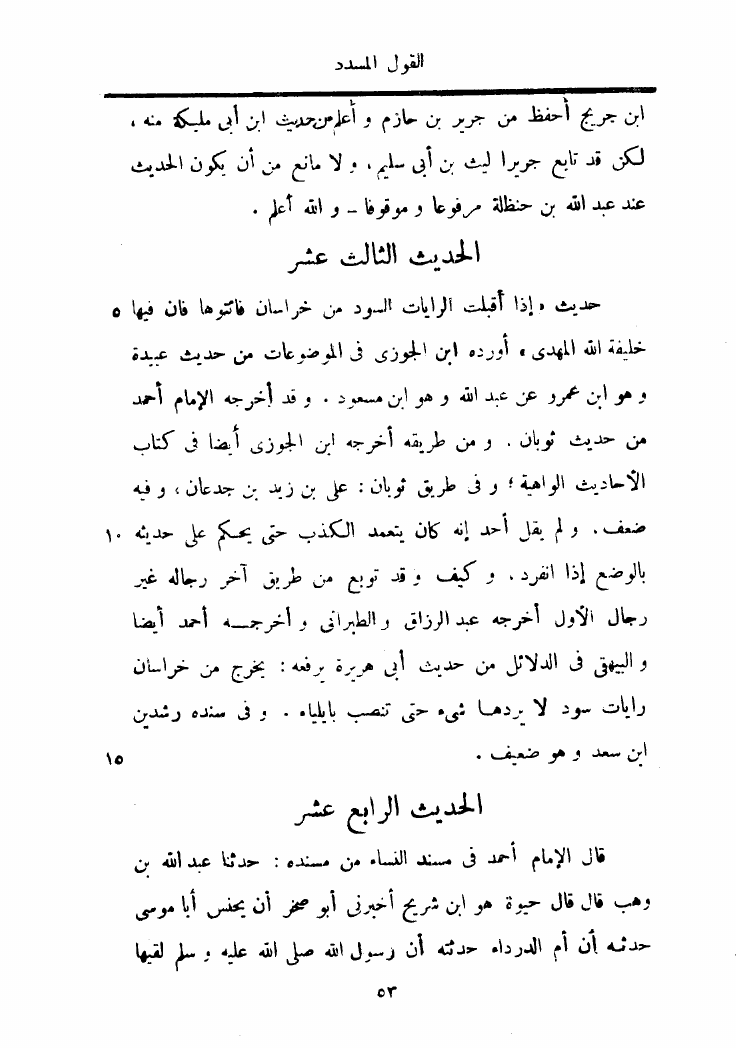 القول المسدد
ابن جريج أحفظ من جرير بن حازم و أعلم من حديث ابن أبى مليكة منه ،
لكن قد تابع جريرا ليث بن أبى سليم ، و لا مانع من أن يكون الحديث
عند عبد الله بن حنظلة مرفوعا و موقوفا – و الله أعلم .
الحديث الثالث عشر
حديث « إذا أقبلت الرايات السود من خراسان فائتوها فان فيها ٥
خليفة الله المهدى » أورده ابن الجوزى فى الموضوعات من حديث عبيدة
و هو ابن عمرو عن عبد الله و هو ابن مسعود . و قد أخرجه الإمام أحمد
من حديث ثوبان . و من طريقه أخرجه ابن الجوزى أيضا فى كتاب
الأحاديث الواهية ؛ و فى طريق ثوبان : على بن زيد بن جدعان ، و فيه
ضعف . و لم يقل أحد إنه كان يتعمد الكذب حتى يحكم على حديثه ١٠
بالوضع إذا انفرد . و كيف و قد توبع من طريق آخر رجاله غير
رجال الأول أخرجه عبد الرزاق و الطبرانى و أخرجـــه أحمد أيضا
و البيهقى فى الدلائل من حديث أبى هريرة يرفعه : يخرج من خراسان
رايات سود لا يردها شىء حتى تنصب بايلياء . و فى سنده رشدين
ابن سعد و هو ضعيف . ١٥
الحديث الرابع عشر
قال الإمام أحمد فى مسند النساء من مسنده : حدثنا عبد الله بن
وهب قال قال حيوة هو ابن شريح أخبرنى أبو صخر أن يحنس أبا موسى
حدثه أن أم الدرداء حدثته أن رسول الله صلى الله عليه و سلم لقيها
٥٣